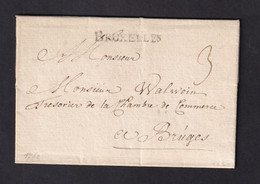 BRUXELLES
A Monsieur
3
Monsieur Walwein
Tresorier de la Chambre de Commerce
a Bruges